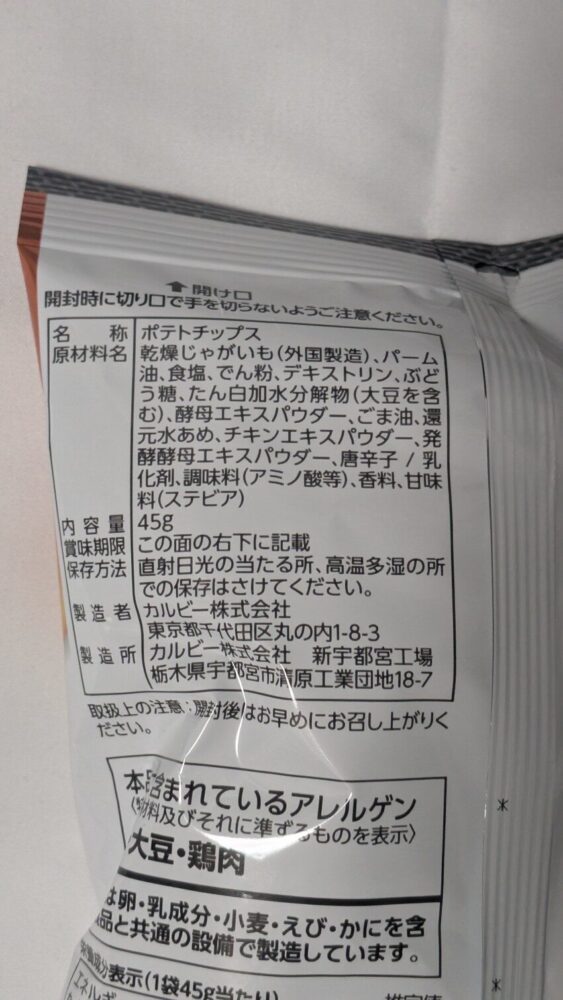 開け口
開封時に切り口で手を切らないようご注意ください。
名称 ポテトチップス
原材料名 乾燥じゃがいも(外国製造)、パーム
油、食塩、でん粉、デキストリン、ぶど
う糖、たん白加水分解物(大豆を含
む)、酵母エキスパウダー、ごま油、還
元水あめ、チキンエキスパウダー、発
酵酵母エキスパウダー、唐辛子 / 乳
化剤、調味料(アミノ酸等)、香料、甘味
料(ステビア)
内容量 45g
賞味期限 この面の右下に記載
保存方法 直射日光の当たる所、高温多湿の所
での保存はさけてください。
製造者 カルビー株式会社
東京都千代田区丸の内1-8-3
製造所 カルビー株式会社 新宇都宮工場
栃木県宇都宮市清原工業団地18-7
取扱上の注意:開封後はお早めにお召し上がりく
ださい。
本品に含まれているアレルゲン
材料及びそれに準ずるものを表示〉
大豆・鶏肉
は卵・乳成分・小麦・えび・かにを含
品と共通の設備で製造しています。
成分表示(1袋45g当たり)
推定値